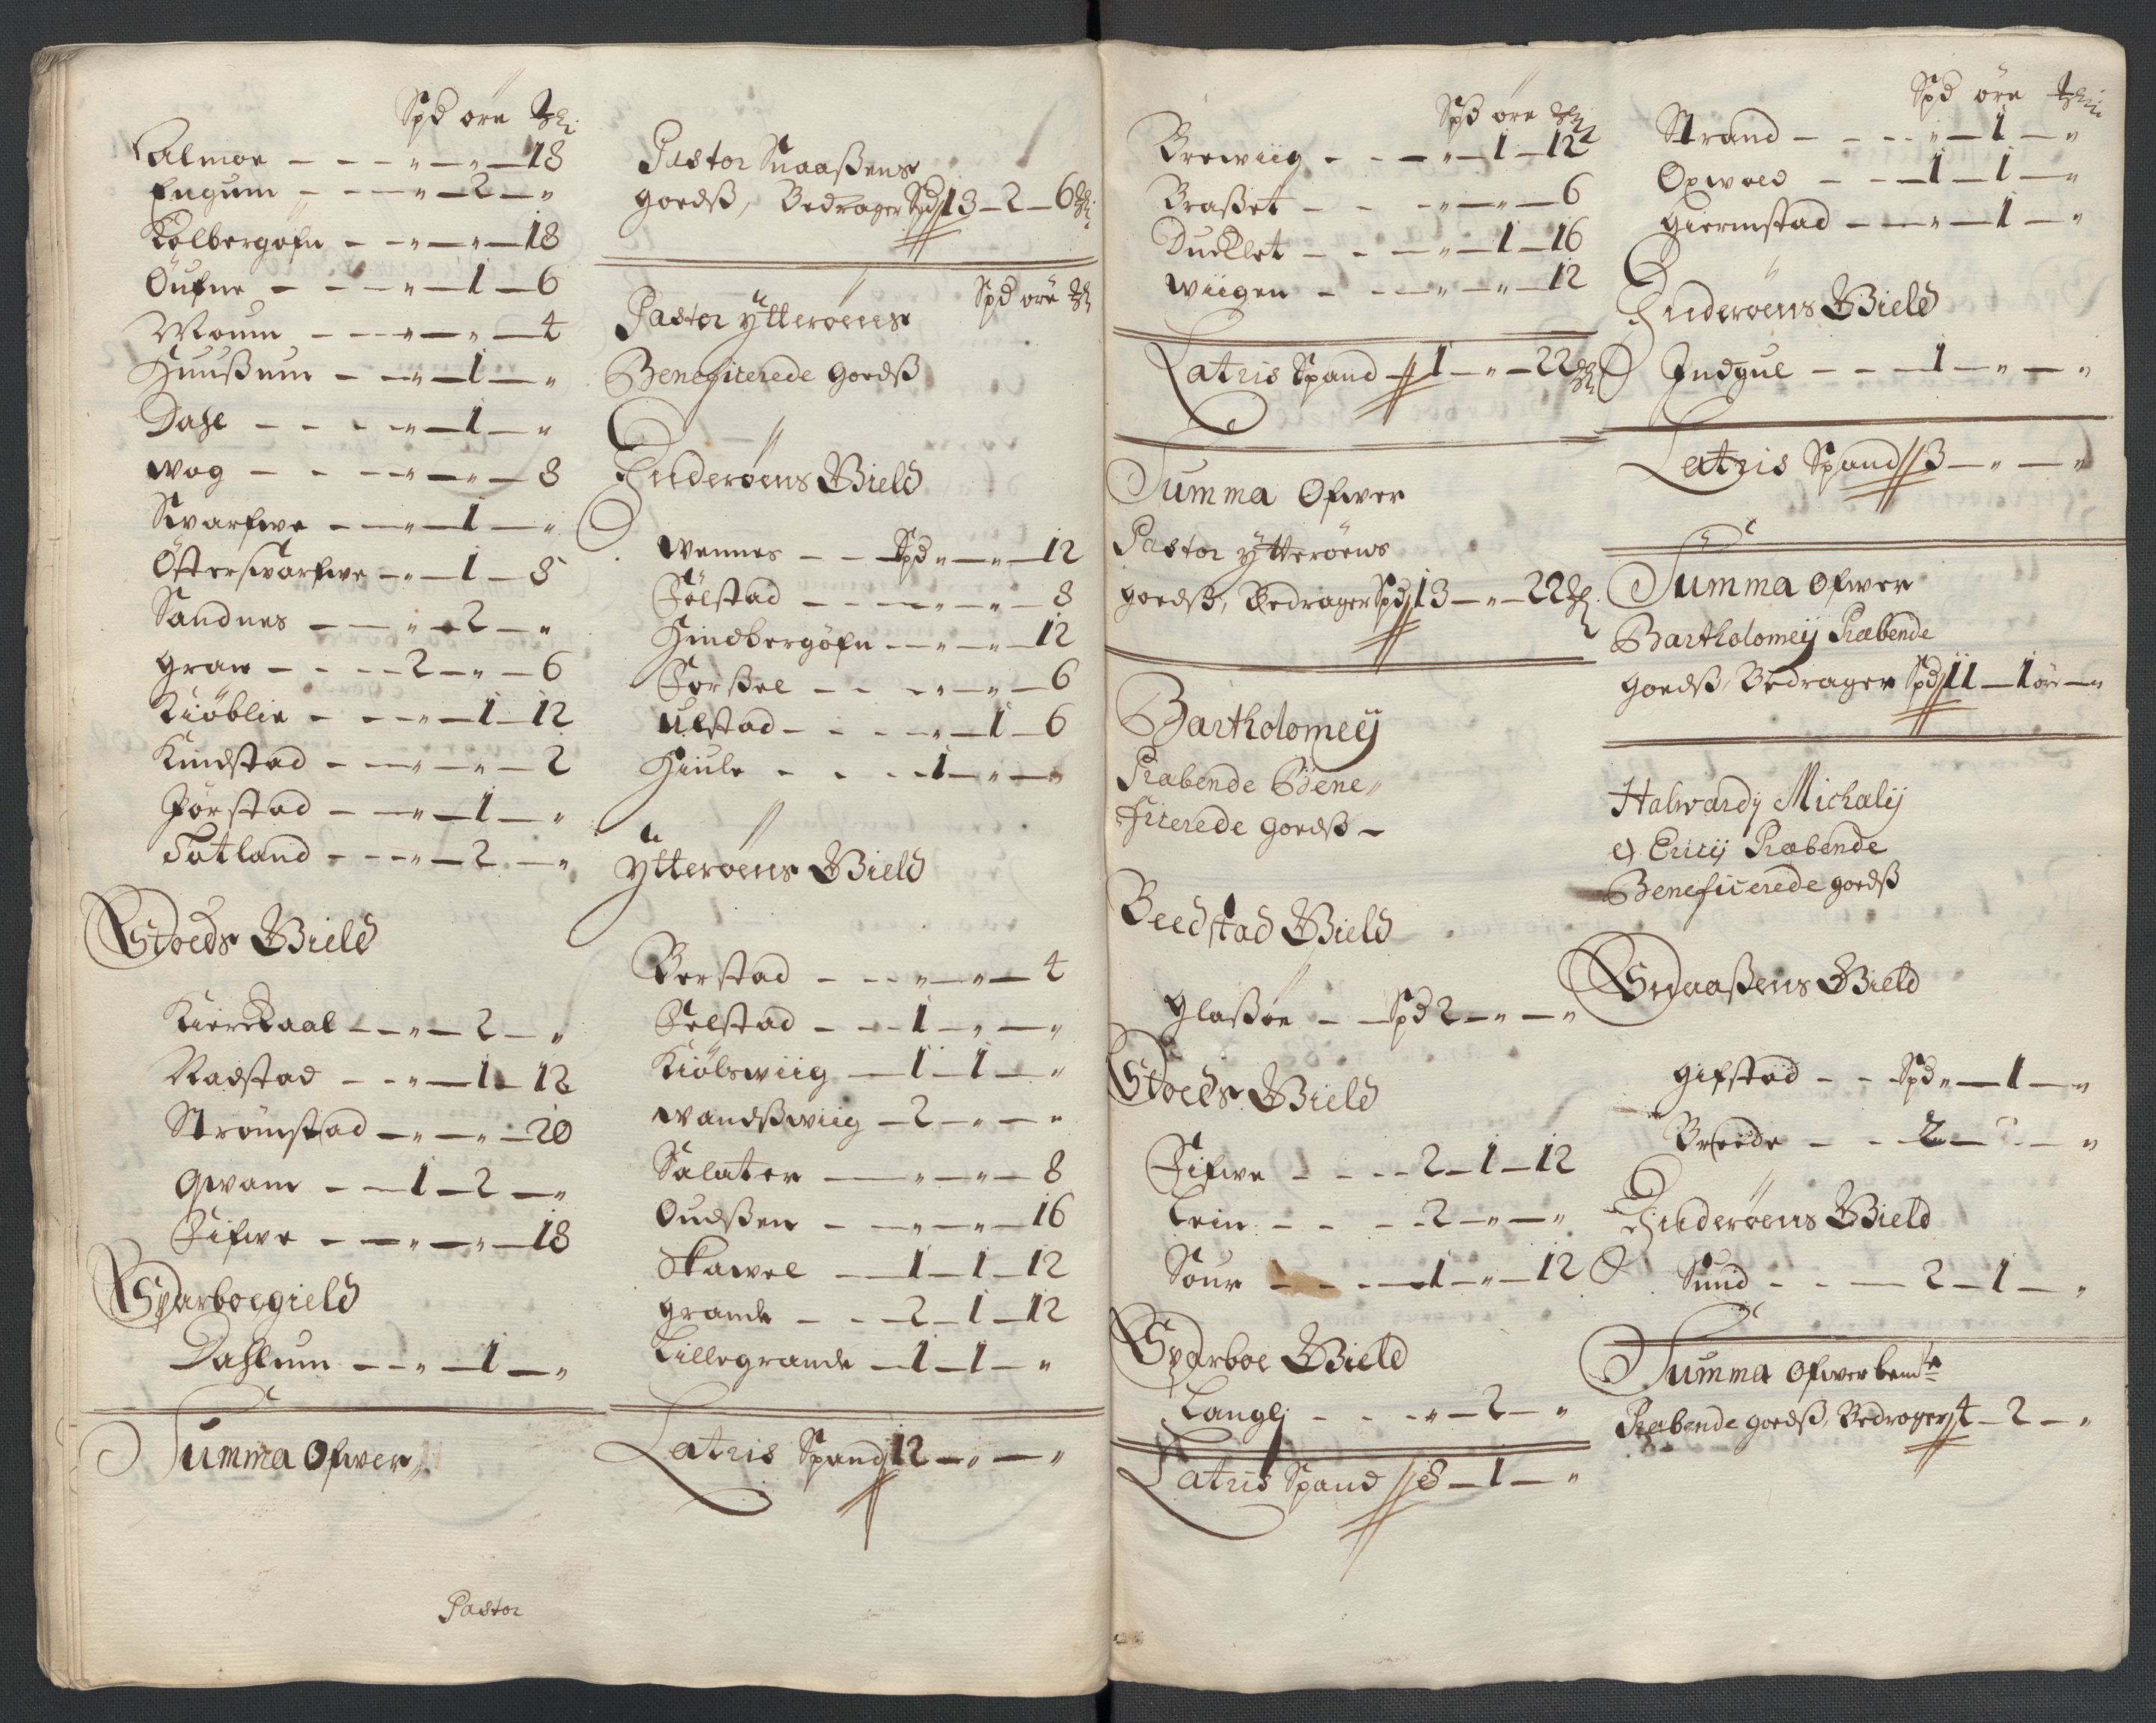 Spd öre mkl:
Almoe - - - " - " - 18
Engum - - - " - 2 - "
Kolbergofn - - " - " - 18
Öufne - - - " - 1 - 6
Moum - - - " - " - 4
Huußum - - " - 1 - "
Dahl - - - " - 1 - "
wog - - - " - " - 8
Swarfwe - - " - 1 - "
Österswarfwe - " - 1 - 8
Sandnes - - " - 2 - "
Gran - - - 2 - " - 6
Kiöblie - - - " - 1 - 12
Kindstad - - " - " - 2
Förstad - - " - 1 - "
Totland - - - " - 2 - "
Stoeds Gield
Kierckaal - - " - 2 - "
Radstad - - " - 1 - 12
Strömstad - " - " - 20
Qwam - - 1 - 2 - "
Fifwe - - " - " - 18
Sparboegield
Dahlum - - " - 1 - "
Summa Ofwer
Pastor
Pastor Snaaßens
goedß, Bedrager Spd 13 - 2 - 6 mkl:
Spd öre mkl
Pastor Ytterøens
Beneficerede goedß
Inderøens Gield
Wennes - - Spd " - " - 12
Fölstad - - - " - " - 8
Hindbergöfn - - " - " - 12
Forßel - - - " - " - 6
Ulstad - - - - " - 1 - 6
Hiule - - - 1 - " - "
Ytterøens Gield
Berstad - - - " - " - 4
Felstad - - - 1 - " - "
Kiölswiig - 1 - 1 - "
wandßwiig - 2 - " - "
Salater - - " - " - 8
Oudßen - - " - " - 16
Skawel - 1 - 1 - 12
Grande - - 2 - 1 - 12
Lillegrande - 1 - 1 - "
Latris Spand 12 - " - "
Spd öre mkl
Brewiig - - - " - 1 - 12
Braßet - - - " - " - 6
Dueklet - - - " - 1 - 16
Wiigen - - - " - " - 12
Latris Spand 1 - " - 22 mkl
Summa Ofwer
Pastor Ytterøens
goedß, Bedrager Spd 13 - " - 22 mkl.
Bartholomeij
Præbende Bene"
ficerede goedß -
Beedstad Gield
Glaßöe - - Spd 2 - " - "
Stoeds Gield
Fifwe - - - 2 - 1 - 12
Lein - - - 2 - " - "
Sour - - - 1 - " - 12
Sparboe Gield
Langlj - - - " - 2 - "
Latris Spand 8 - 1 - "
Spd öre mkl:
Strand - - - " - 1 - "
Opwold - - 1 - 1 - "
Giermstad - - " - 1 - "
Inderøens Gield
Indgul - - - 1 - " - "
Latris Spand 3 - " - "
Summa Ofwer
Bartholomeij Præbende
goedß, Bedrager Spd 11 - 1 öre - "
Halwardj Michalij
Ericij Præbende
Beneficerede goedß
Snaaßens Gield
Gifstad - - Spd " - 1 - "
Breede - - 2 - " - "
Inderøens Gield
Sund - - - 2 - 1 - "
Summa Ofwer bemte
Præbende goedß, Bedrager 4 - 2 - "